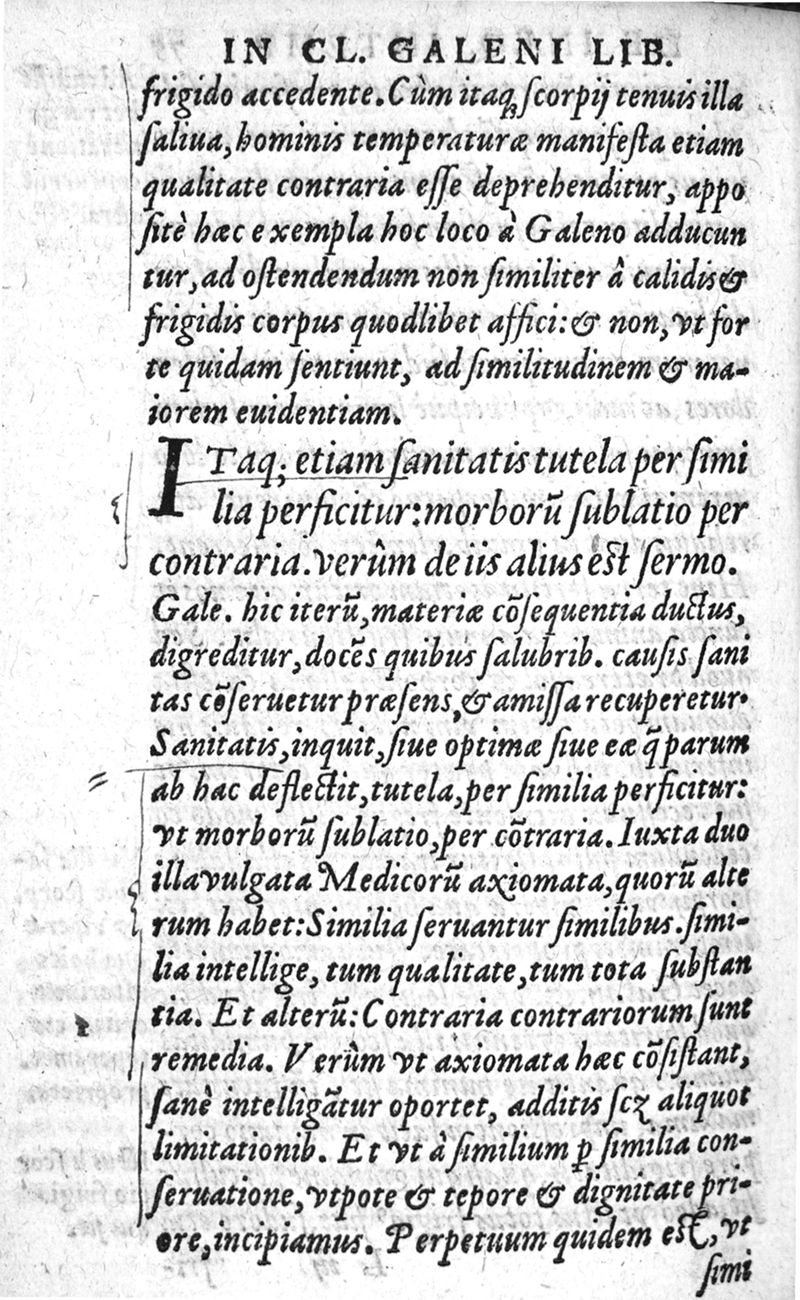 IN CL. GALENI LIB.
frigido accedente. Cùm itaq; scorpij tenuis illa
saliua, hominis temperaturæ manifesta etiam
qualitate contraria esse deprehenditur, appo
sitè hæc exempla hoc loco à Galeno adducun
tur, ad ostendendum non similiter â calidis &
frigidis corpus quodlibet affici: & non, vt for
te quidam sentiunt, ad similitudinem & ma-
iorem euidentiam.
ITaq; etiam sanitatis tutela per simi
lia perficitur: morborũ sublatio per
contraria. verûm de iis alius est sermo.
Gale. hic iterũ, materiæ cõsequentia ductus,
digreditur, docẽs quibus salubrib. causis sani
tas cõseruetur præsens, & amissa recuperetur.
Sanitatis, inquit, siue optimæ siue eæ q̃ parum
ab hac deflectit, tutela, per similia perficitur:
vt morborũ sublatio, per cõtraria. Iuxta duo
illa vulgata Medicorũ axiomata, quorũ alte
rum habet: Similia seruantur similibus. simi-
lia intellige, tum qualitate, tum tota substan
tia. Et alterũ: Contraria contrariorum sunt
remedia. Verûm vt axiomata hæc cõsistant,
sanè intelligãtur oportet, additis scꝫ aliquot
limitationib. Et vt â similium ꝑ similia con-
seruatione, vtpote & tepore & dignitate pri-
ore, incipiamus. Perpetuum quidem est, vt
simi